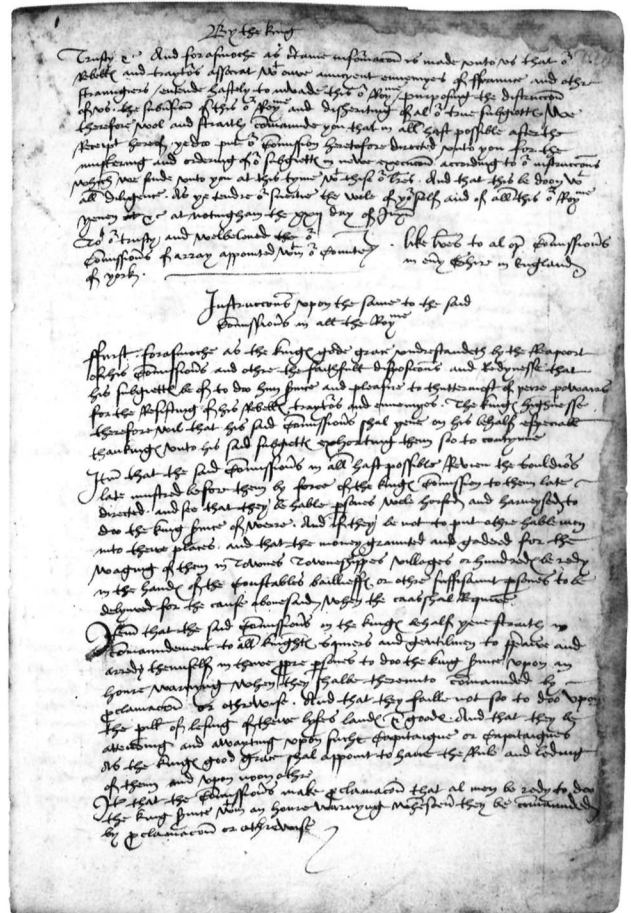 By the king
Trusty &c And forasmoche as certaine informacon is made unto us that oʳ
Rebells and traytoʳs associat wᵗ oure auncyent ennemyes of ffraunce and othr
straungiers entende hastely to invade this oʳ Royᵐᵉ purposing the distruccon
of us the subvʳsion of this oʳ Royᵐᵉ and dishʳiting of al oʳ true subgietts We
therefore wol and straitly comaunde you that in all hast possible after the
Receipt hereof ye doo put oʳ Comission heretofore directed unto you for the
mustering and ordering of oʳ subgietts in newe execucon according to oʳ instruccons
which we sende unto you at this tyme wᵗ thise oʳ lʳes And that this be doon wᵗ
all diligence As ye tendre oʳ suertie the wele of yoʳ self and of all this oʳ Royᵐᵉ
yeven at &c at notingham the xxij day of Juyn
To oʳ trusty and welbeloued the oʳ
Comissions of array appointed wᵗin oʳ Countie
of york
like lʳes to al oþʳ Comissions
in evʳy Shire in England
Instruccons upon the same to the said
Comissions in all the Royᵐᵉ
ffurst forasmoche as the kings gode grace undrestandeth by the Raport
of his Comissions and other the faithfull disposicons and Redynesse that
his subgietts be of to do him sʳuice and pleasure to thuttermest of þeire powairs
for the Resisting of his Rebells traytoʳs and ennemyes The kings highnesse
therefore wol that his said Comissions shal yeve on his behalf especiall
thankings unto his said subgietts exhorting them so to contynue
Itm that the said Comissions in all hast possible Review the souldioʳs
late mustred before them by force of the kings Comission to them late
directed and see that they be hable psones wele horsed and harneysed to
doo the king sʳuice of werre And if they be not to put othre hable men
into there places and that the money graunted and gadered for the
waging of them in Townes Towneshippes villages or hundreds be redy
in the hands of the Constables bailliefs or othre suffisaunt psones to be
delyuʳed for the cause abouesaid when the caas shal Require
Item that the said Comissions in the kings behalf yeve straitly in
Comaundement to all knights squiers and gentilmen to ppaire and
arredy themselfs in there ppre psones to doo the king sʳuice upon an
houre warnyng when they shalbe thereunto comaunded by
pclamacon or othrewise And that they faille not so to doo upon
the pill of losing of there lifes lands & goods And that they be
attending and awayting upon suche Capitaigne or Capitaignes
As the kings good grace shal appoint to haue the Rule and leding
of them and upon noon othre
Itm that the Comissions make pclamacon that al men be redy to doo
the king sʳuice wᵗin an houre warnyng whensoeuʳ they be comaunded
by pclamacon or othrewise